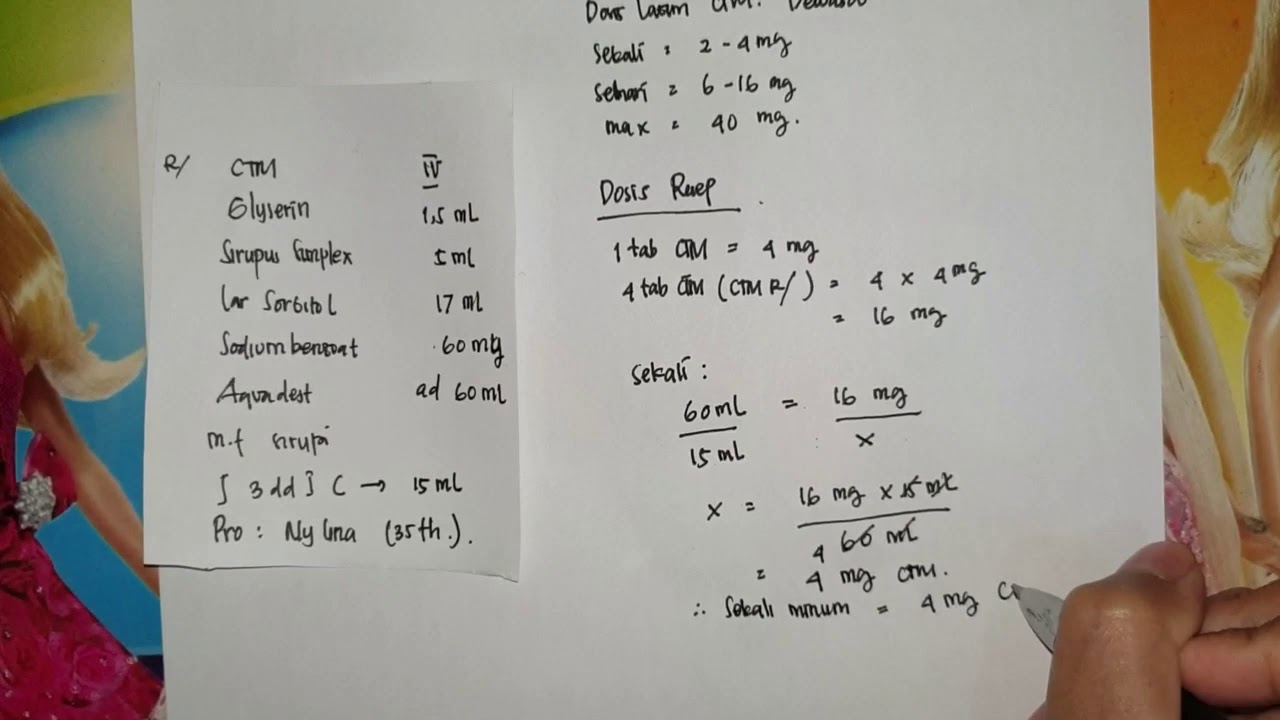 R/ CTM IV
Glyserin 1,5 mL
Sirupus Simplex 5 ml
Lar Sorbitol 17 ml
Sodium benzoat 60 mg
Aquadest ad 60 ml
m.f sirupi
S 3 dd I C → 15 ml
Pro : Ny Lina (35 th.).
Dosis Lazim CTM : Dewasa
Sekali : 2 - 4 mg
Sehari = 6 - 16 mg
max = 40 mg.
Dosis Resep
1 tab CTM = 4 mg
4 tab CTM (CTM R/) = 4 x 4 mg
= 16 mg
Sekali :
60 mL = 16 mg
15 mL x
x = 16 mg x 15 ml
4 60 ml
= 4 mg CTM.
∴ Sekali minum = 4 mg C